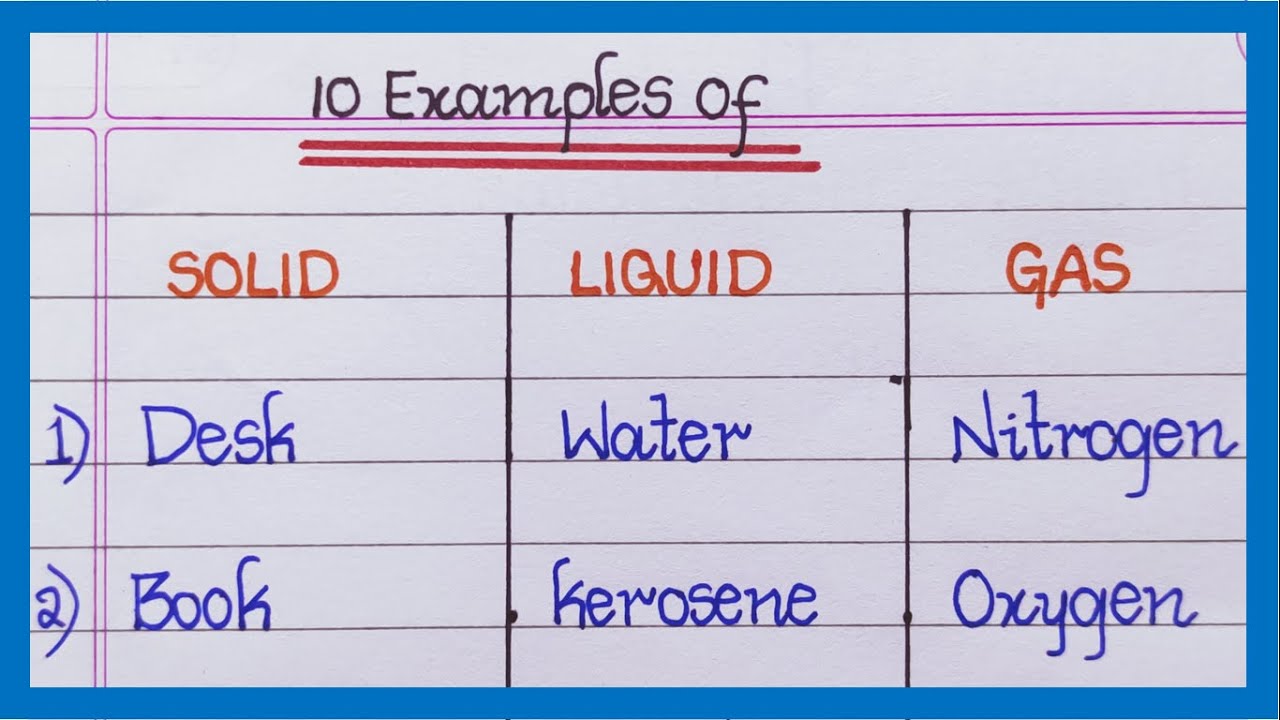 10 Examples of
SOLID LIQUID GAS
1) Desk Water Nitrogen
2) Book Kerosene Oxygen